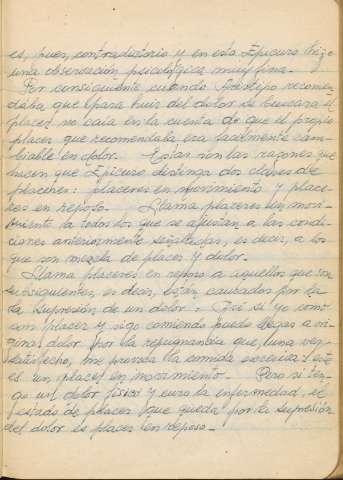 es, pues, contradictorio y en esto Epicuro hizo
una observación psicológica muy fina.-
Por consiguiente cuando Arístipo recomen
daba que para huir del dolor se buscara el
placer no caía en la cuenta de que el propio
placer que recomendaba era facilmente cam-
biable en dolor. Estas son las razones que
hacen que Epicuro distinga dos clases de
placeres: placeres en movimiento y place-
res en reposo.- Llama placeres en movi-
miento a todos los que se ajustan a las condi-
ciones anteriormente señaladas, es decir, a los
que son mezcla de placer y dolor.
Llama placeres en reposo a aquellos que son
subsiguientes, es decir, están causados por la
la supresión de un dolor. Que si yo como
con placer y sigo comiendo puedo llegar a ori-
ginar dolor por la repugnancia que, una vez
satisfecho, me provoca la comida excesiva: este
es un placer en movimiento.- Pero si ten-
go un dolor físico y curo la enfermedad, el
estado de placer que queda por la supresión
del dolor es placer en reposo.-